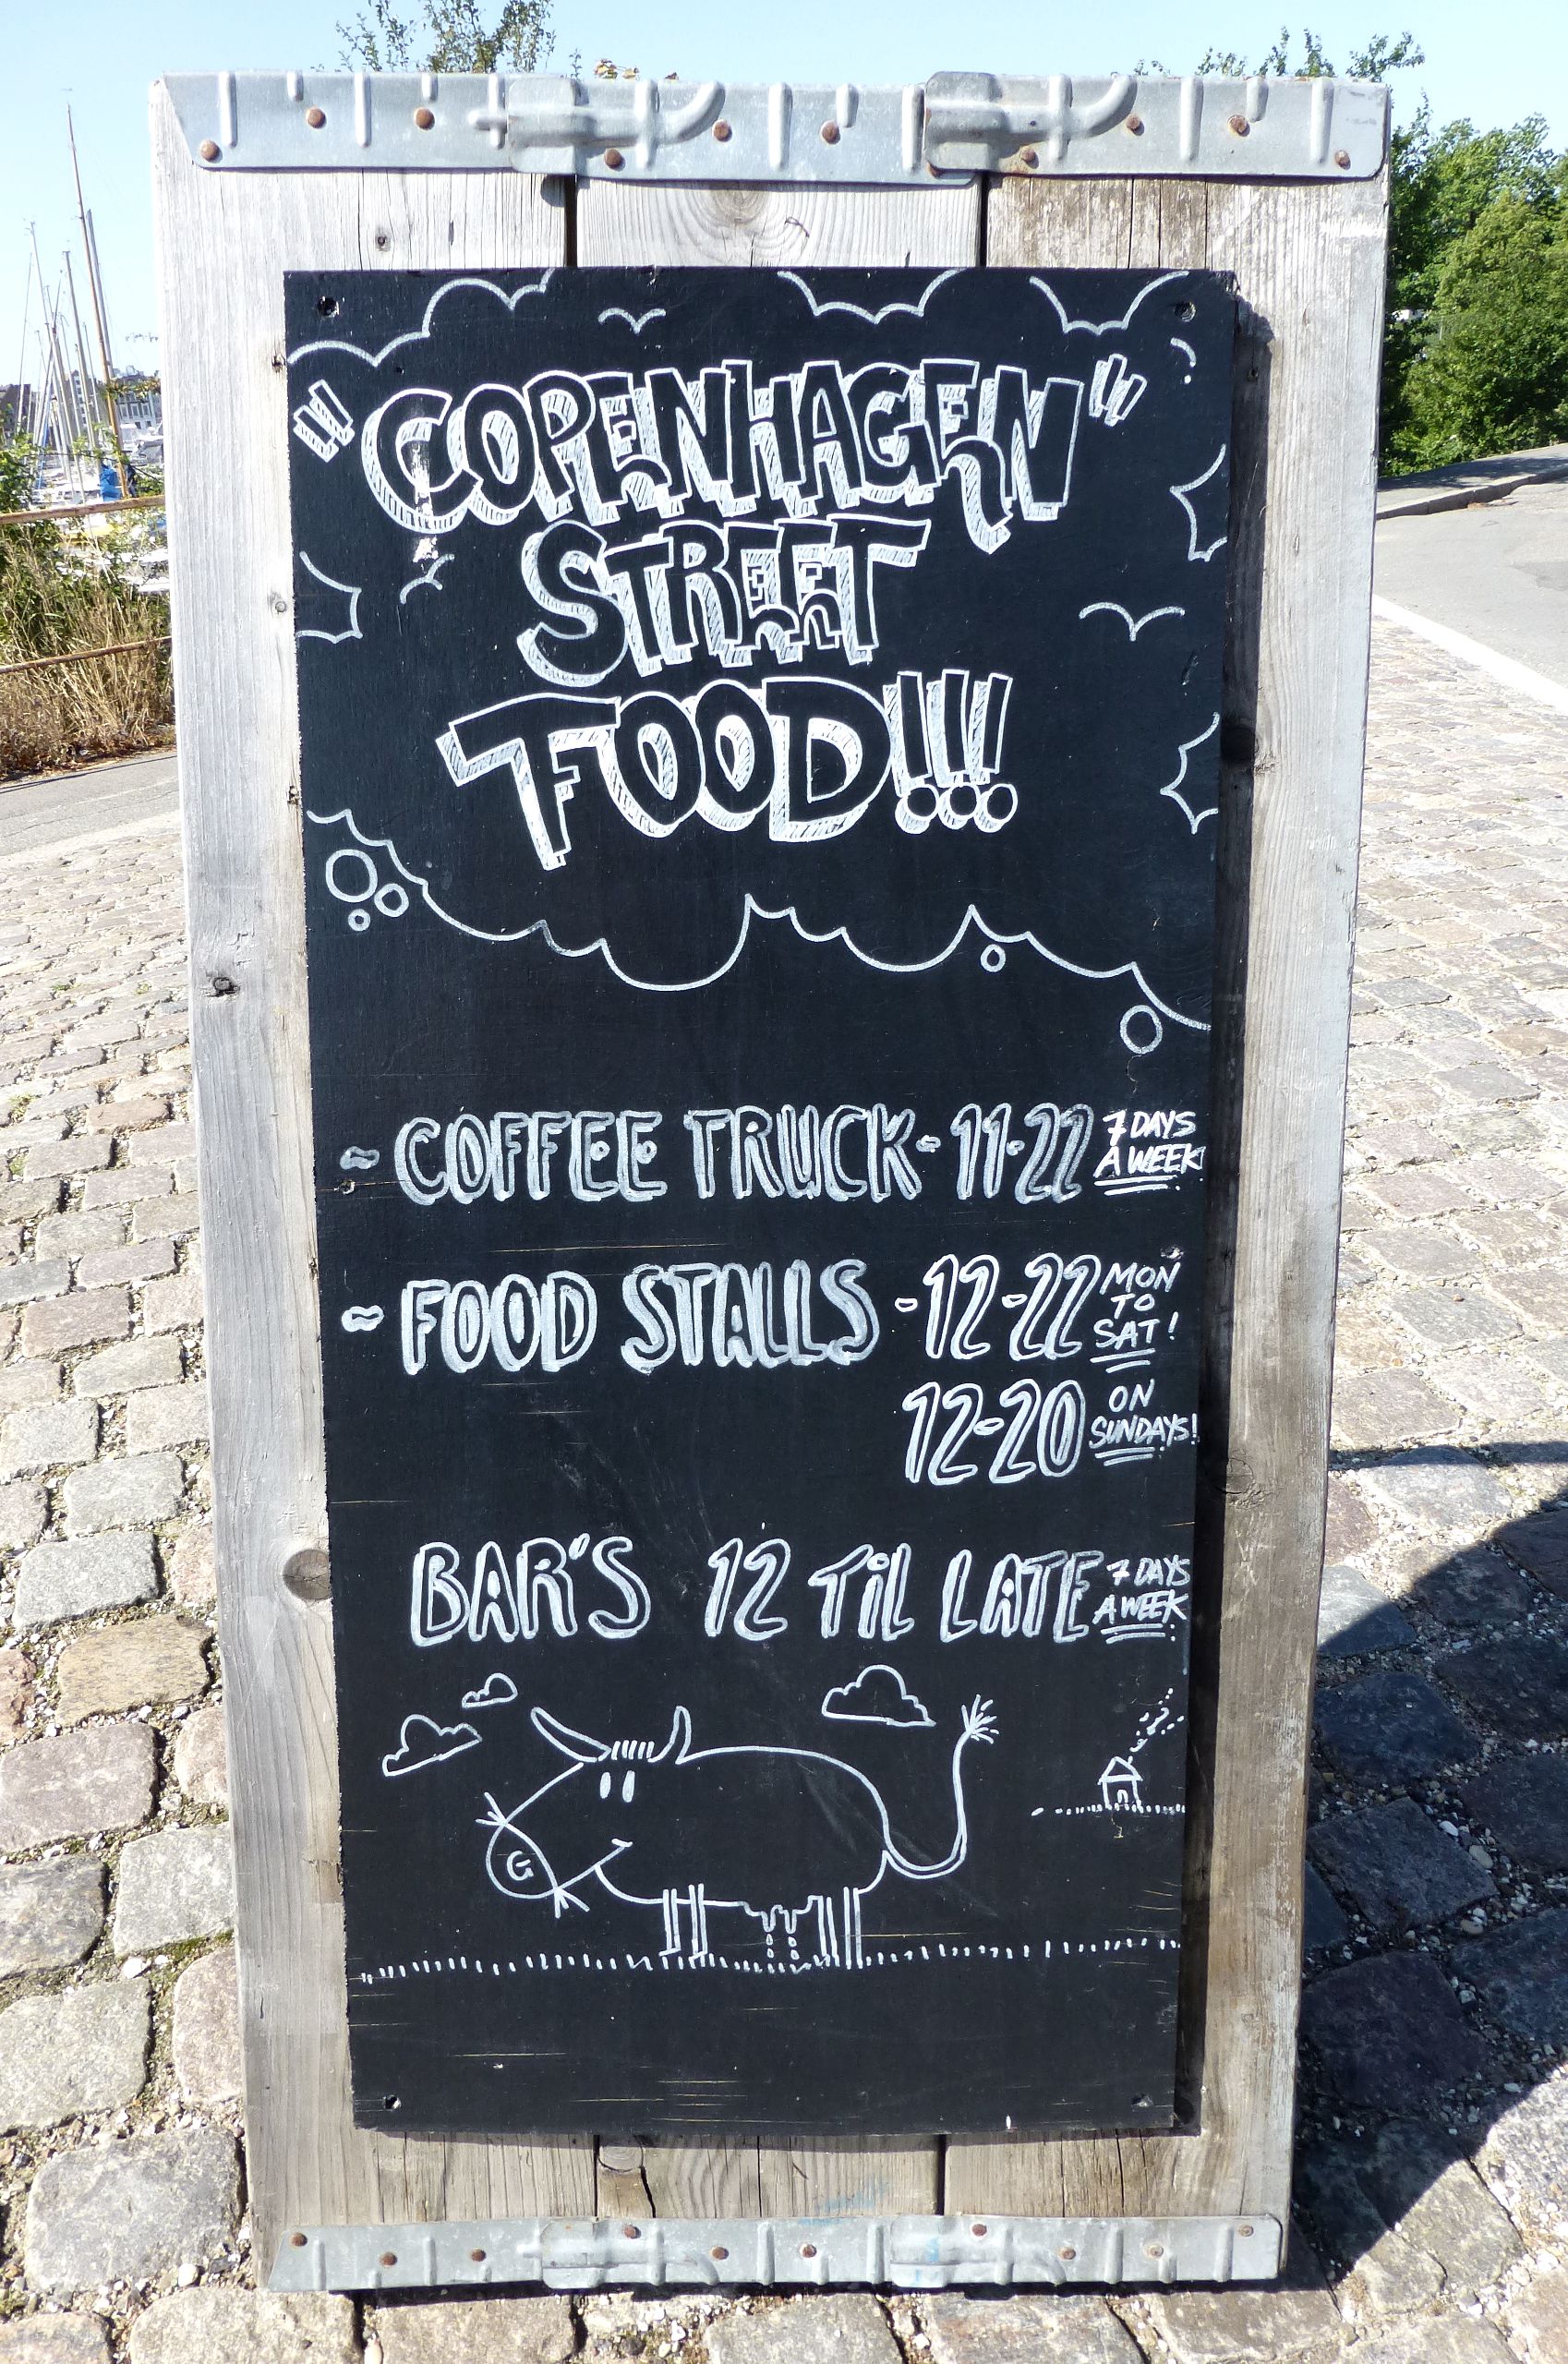 "COPENHAGEN"
STREET
FOOD!!!
~ COFFEE TRUCK - 11-22 7 DAYS A WEEK!
~ FOOD STALLS - 12-22 MON TO SAT!
12-20 ON SUNDAYS!
BAR'S 12 TiL LATE 7 DAYS A WEEK!
G